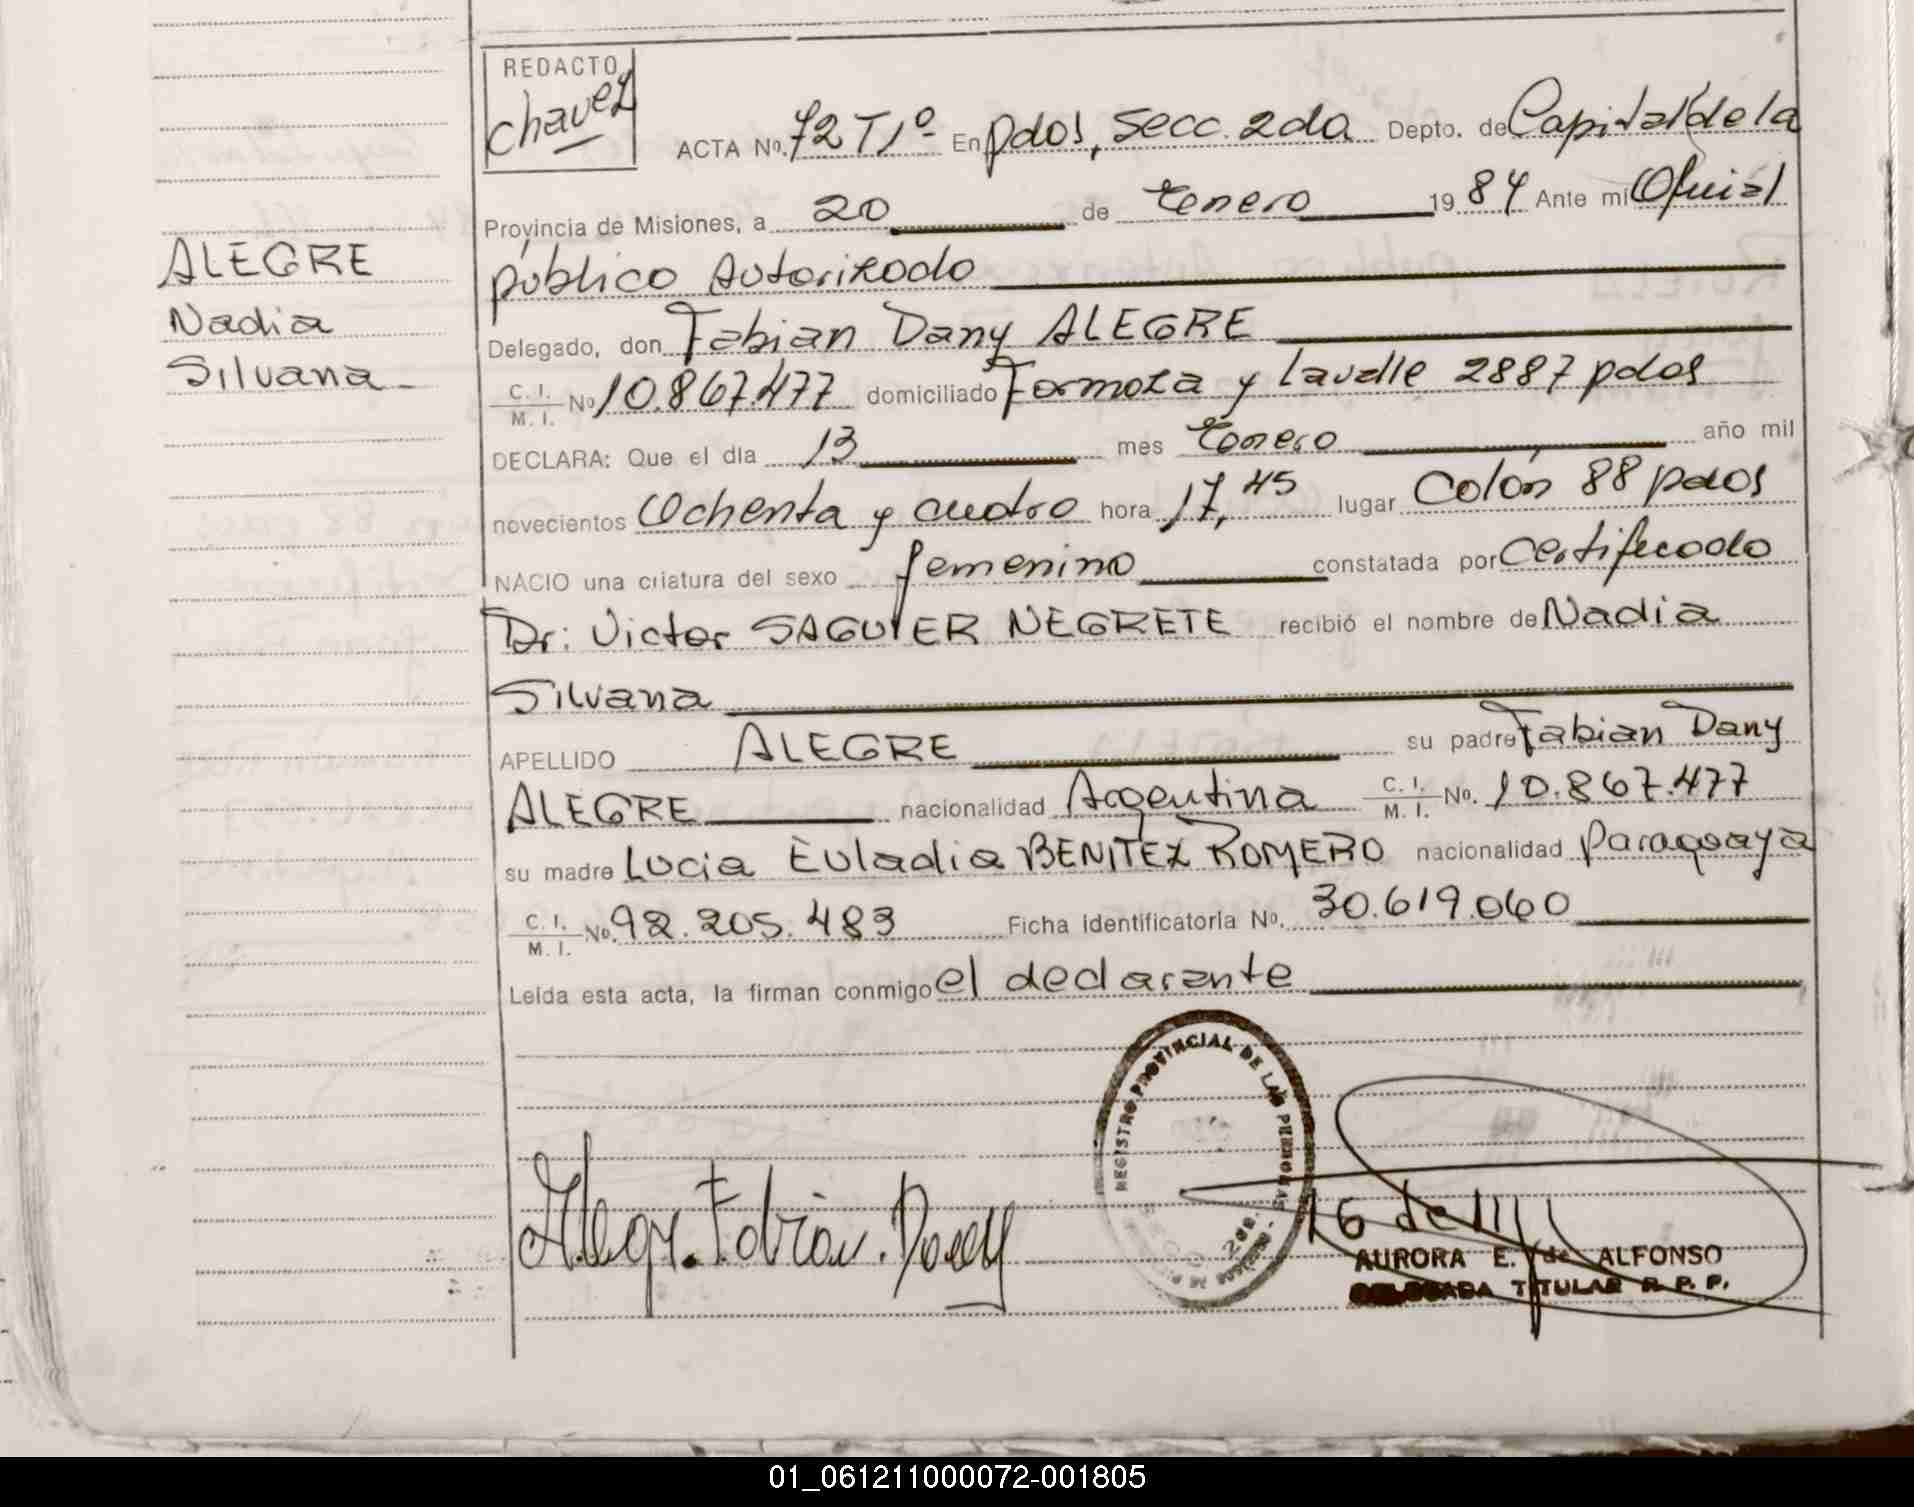 REDACTO
Chavez
ACTA Nº. 72 T1º En pdas, Secc. 2da Depto. de Capital de la
Provincia de Misiones, a 20 de Enero 1984 Ante mi Oficial
público Autorizado
ALEGRE
Nadia
Silvana
Delegado, don Fabian Dany ALEGRE
C. I.
M. I. Nº 10.867.477 domiciliado Formosa y Lavalle 2887 pdas
DECLARA: Que el dia 13 mes Enero año mil
novecientos Ochenta y cuatro hora 17,45 lugar Colón 88 pdas
NACIO una criatura del sexo femenino constatada por Certificado
Dr: Victor SAGUIER NEGRETE recibió el nombre de Nadia
Silvana
APELLIDO ALEGRE su padre Fabian Dany
ALEGRE nacionalidad Argentina C. I.
M. I. Nº. 10.867.477
su madre Lucia Euladia BENITEZ ROMERO nacionalidad Paraguaya
C. I.
M. I. Nº. 92.205.483 Ficha identificatoria Nº. 30.619.060
Leída esta acta, la firman conmigo el declarante
REGISTRO PROVINCIAL DE LAS PERSONAS
Alegre Fabian Dany
AURORA E. de ALFONSO
DELEGADA TITULAR R. P. P.
01_061211000072-001805